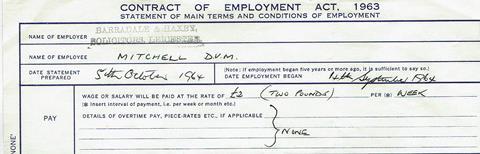 CONTRACT OF EMPLOYMENT ACT, 1963
STATEMENT OF MAIN TERMS AND CONDITIONS OF EMPLOYMENT
NAME OF EMPLOYER BARRADALE & HAXBY, SOLICITORS, LEICESTER
NAME OF EMPLOYEE MITCHELL D.V.M.
DATE STATEMENT PREPARED 5th October 1964
(Note: If employment began five years or more ago, it is sufficient to say so.)
DATE EMPLOYMENT BEGAN September 1964
WAGE OR SALARY WILL BE PAID AT THE RATE OF £2 (TWO POUNDS) PER (⊕) WEEK
⊕ Insert interval of payment, i.e. per week or month etc.)
PAY
DETAILS OF OVERTIME PAY, PIECE-RATES ETC., IF APPLICABLE
NONE
NONE'